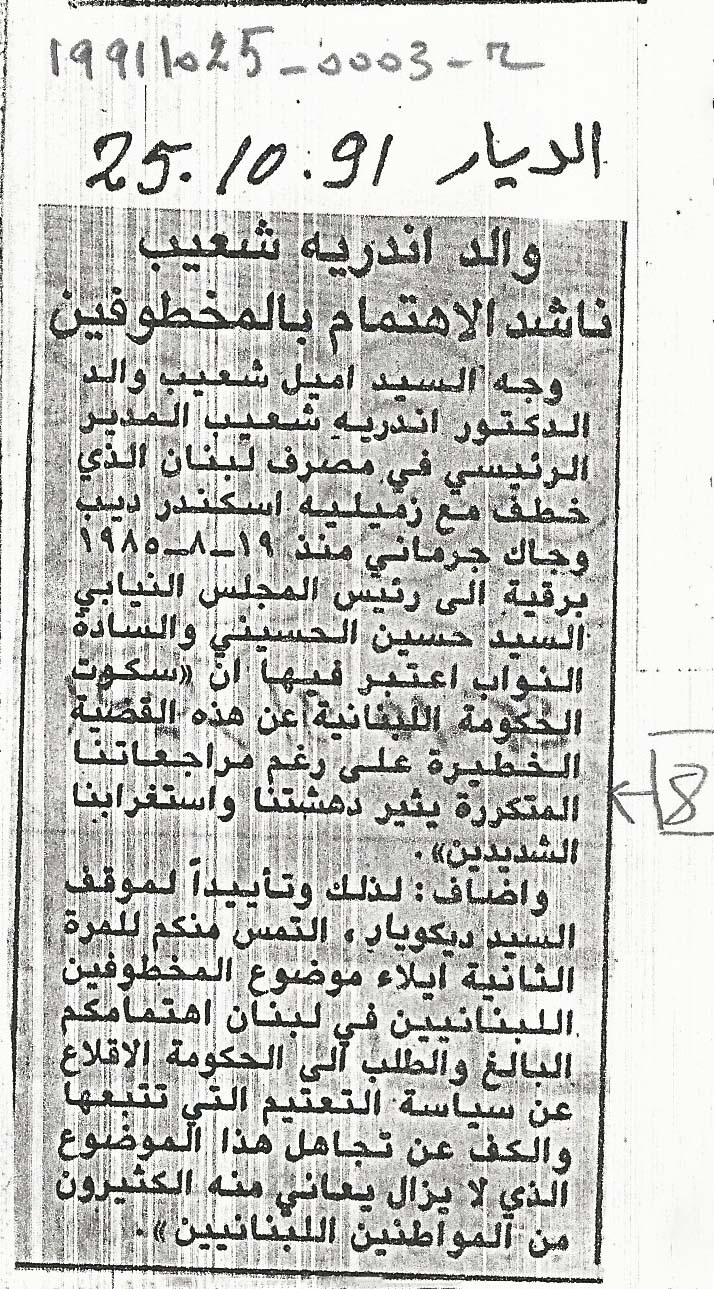 19911025-0003-2
الديار 25.10.91
والد اندريه شعيب
ناشد الاهتمام بالمخطوفين
وجه السيد اميل شعيب والد
الدكتور اندريه شعيب المدير
الرئيسي في مصرف لبنان الذي
خطف مع زميليه اسكندر ديب
وجاك جرماني منذ ١٩-٨-١٩٨٥
برقية الى رئيس المجلس النيابي
السيد حسين الحسيني والسادة
النواب اعتبر فيها ان «سكوت
الحكومة اللبنانية عن هذه القضية
الخطيرة على رغم مراجعاتنا
المتكررة يثير دهشتنا واستغرابنا
الشديدين».
واضاف: لذلك وتأييداً لموقف
السيد ديكويار، التمس منكم للمرة
الثانية ايلاء موضوع المخطوفين
اللبنانيين في لبنان اهتمامكم
البالغ والطلب الى الحكومة الاقلاع
عن سياسة التعتيم التي تتبعها
والكف عن تجاهل هذا الموضوع
الذي لا يزال يعاني منه الكثيرون
من المواطنين اللبنانيين».